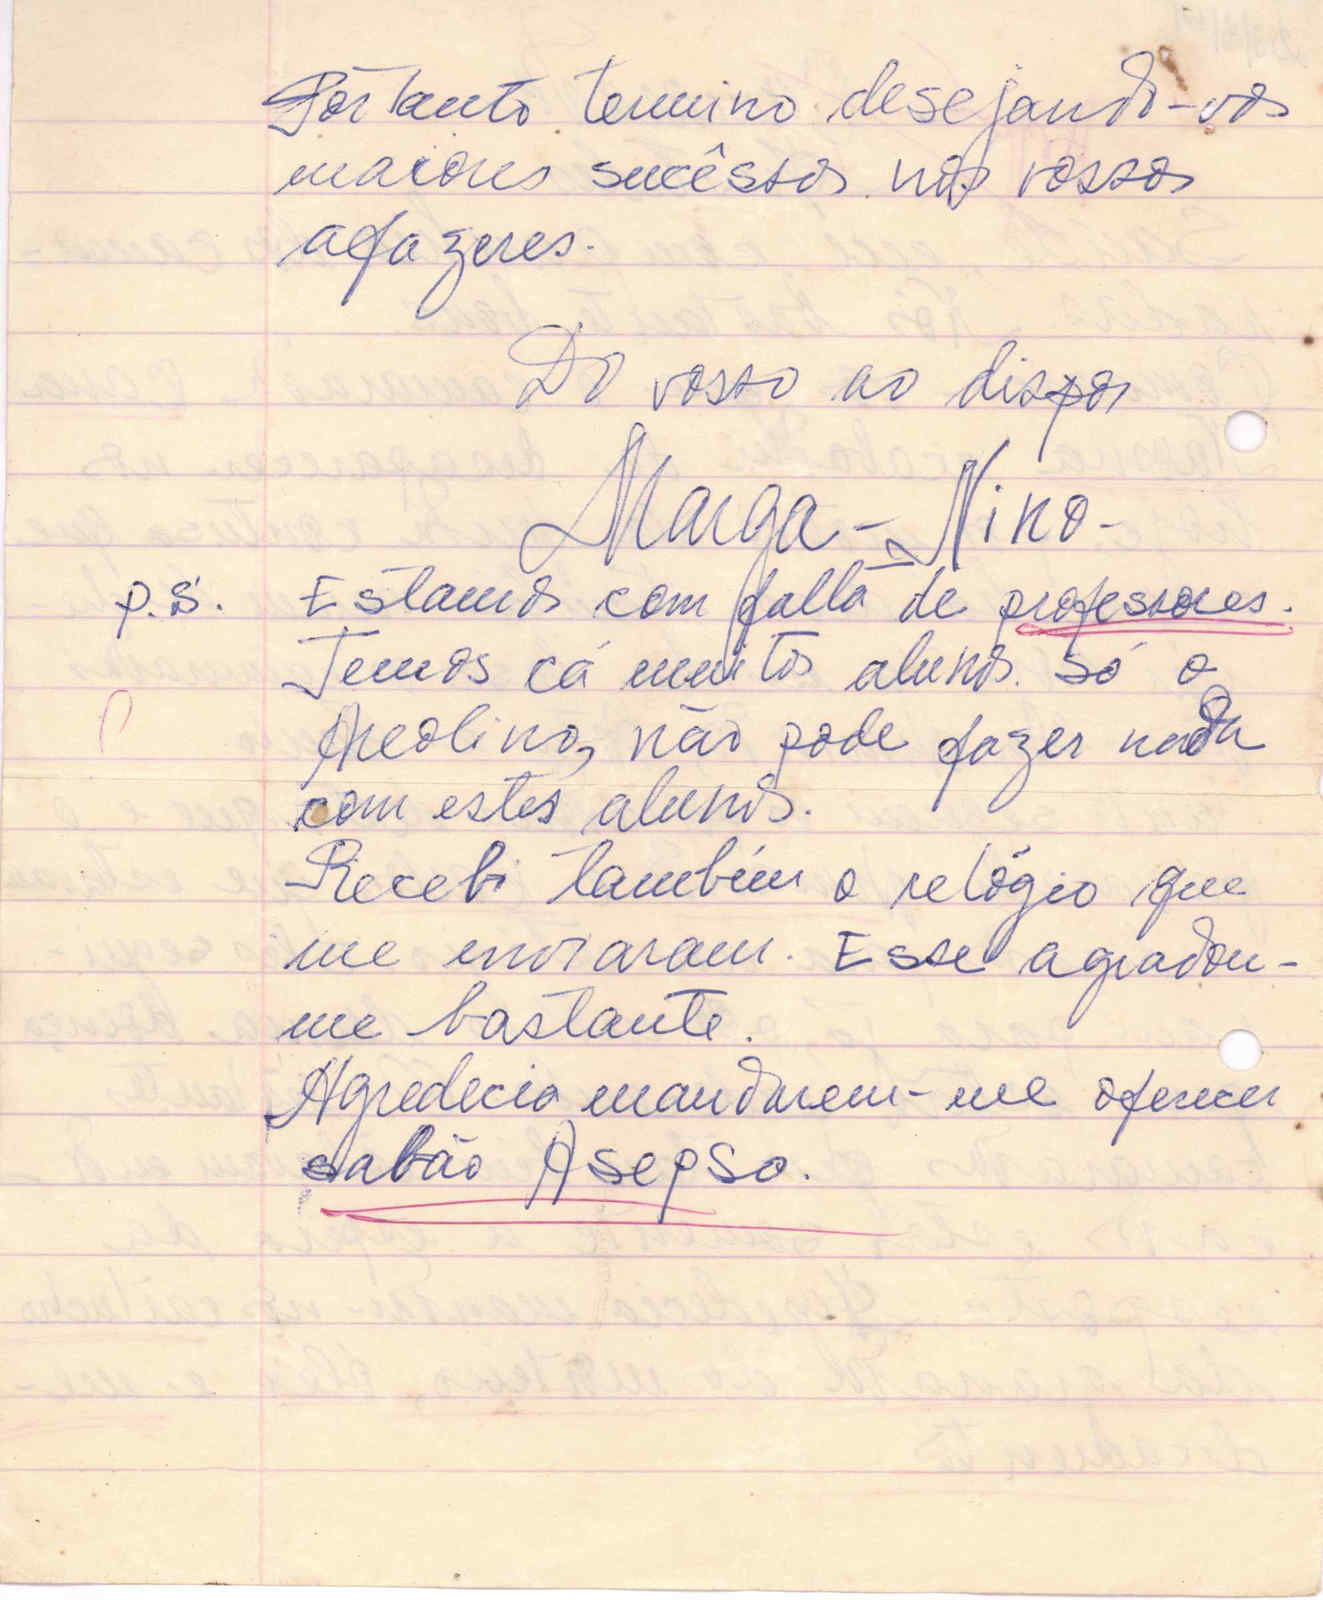 Portanto termino desejando-vos
maiores sucêssos nos vossos
afazeres.
Do vosso ao dispor
Marga - Nino -
p.s. Estamos com falta de professores.
Temos cá muitos alunos. só o
não pode fazer nada
com estes alunos.
Recebi também o relógio que
me enviaram. Esse agradou-
me bastante.
Agredecia mandarem-me oferecer
sabão Asepso.